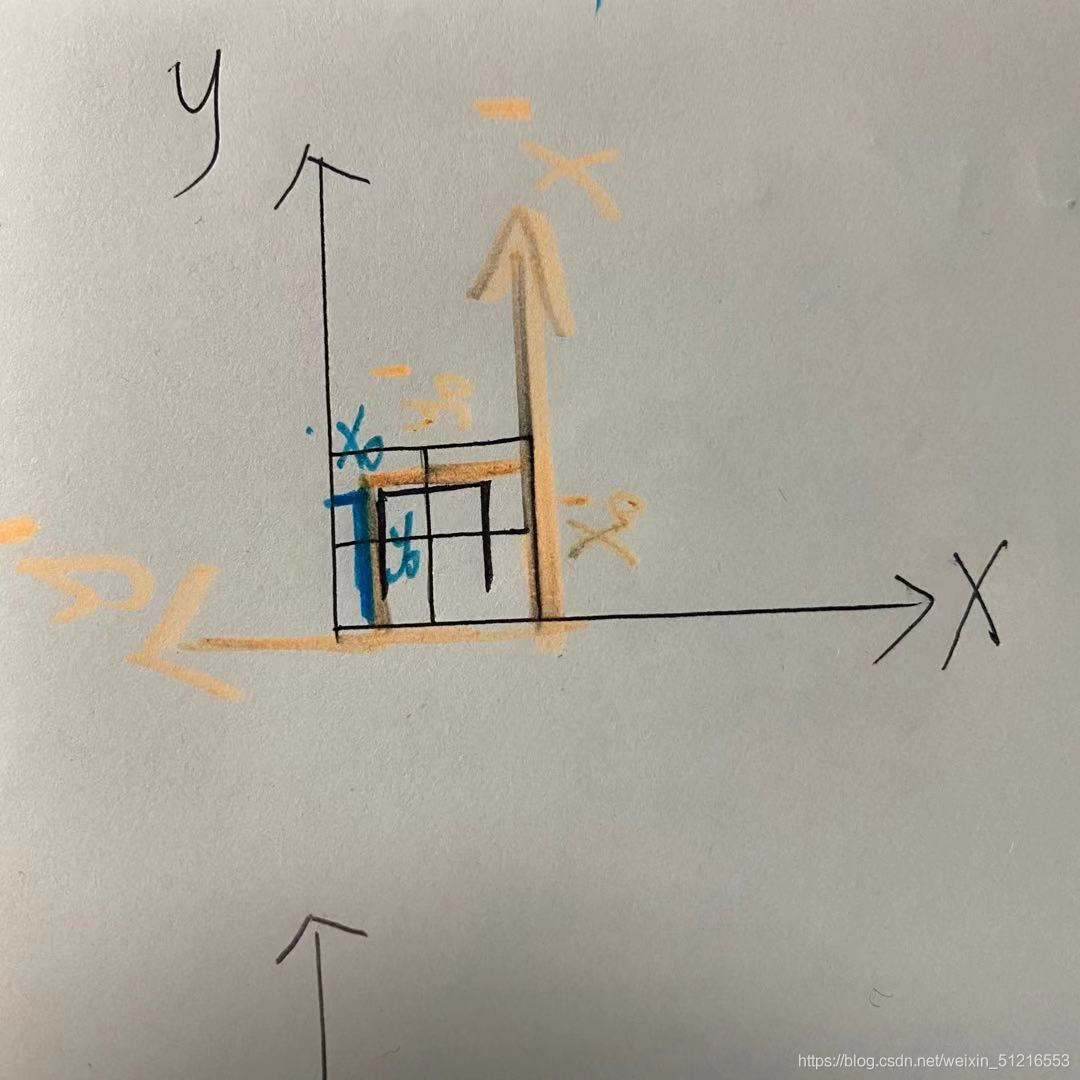 y
x̄
ȳ₀
x₀
x̄₀
y₀
ȳ
X
https://blog.csdn.net/weixin_51216553